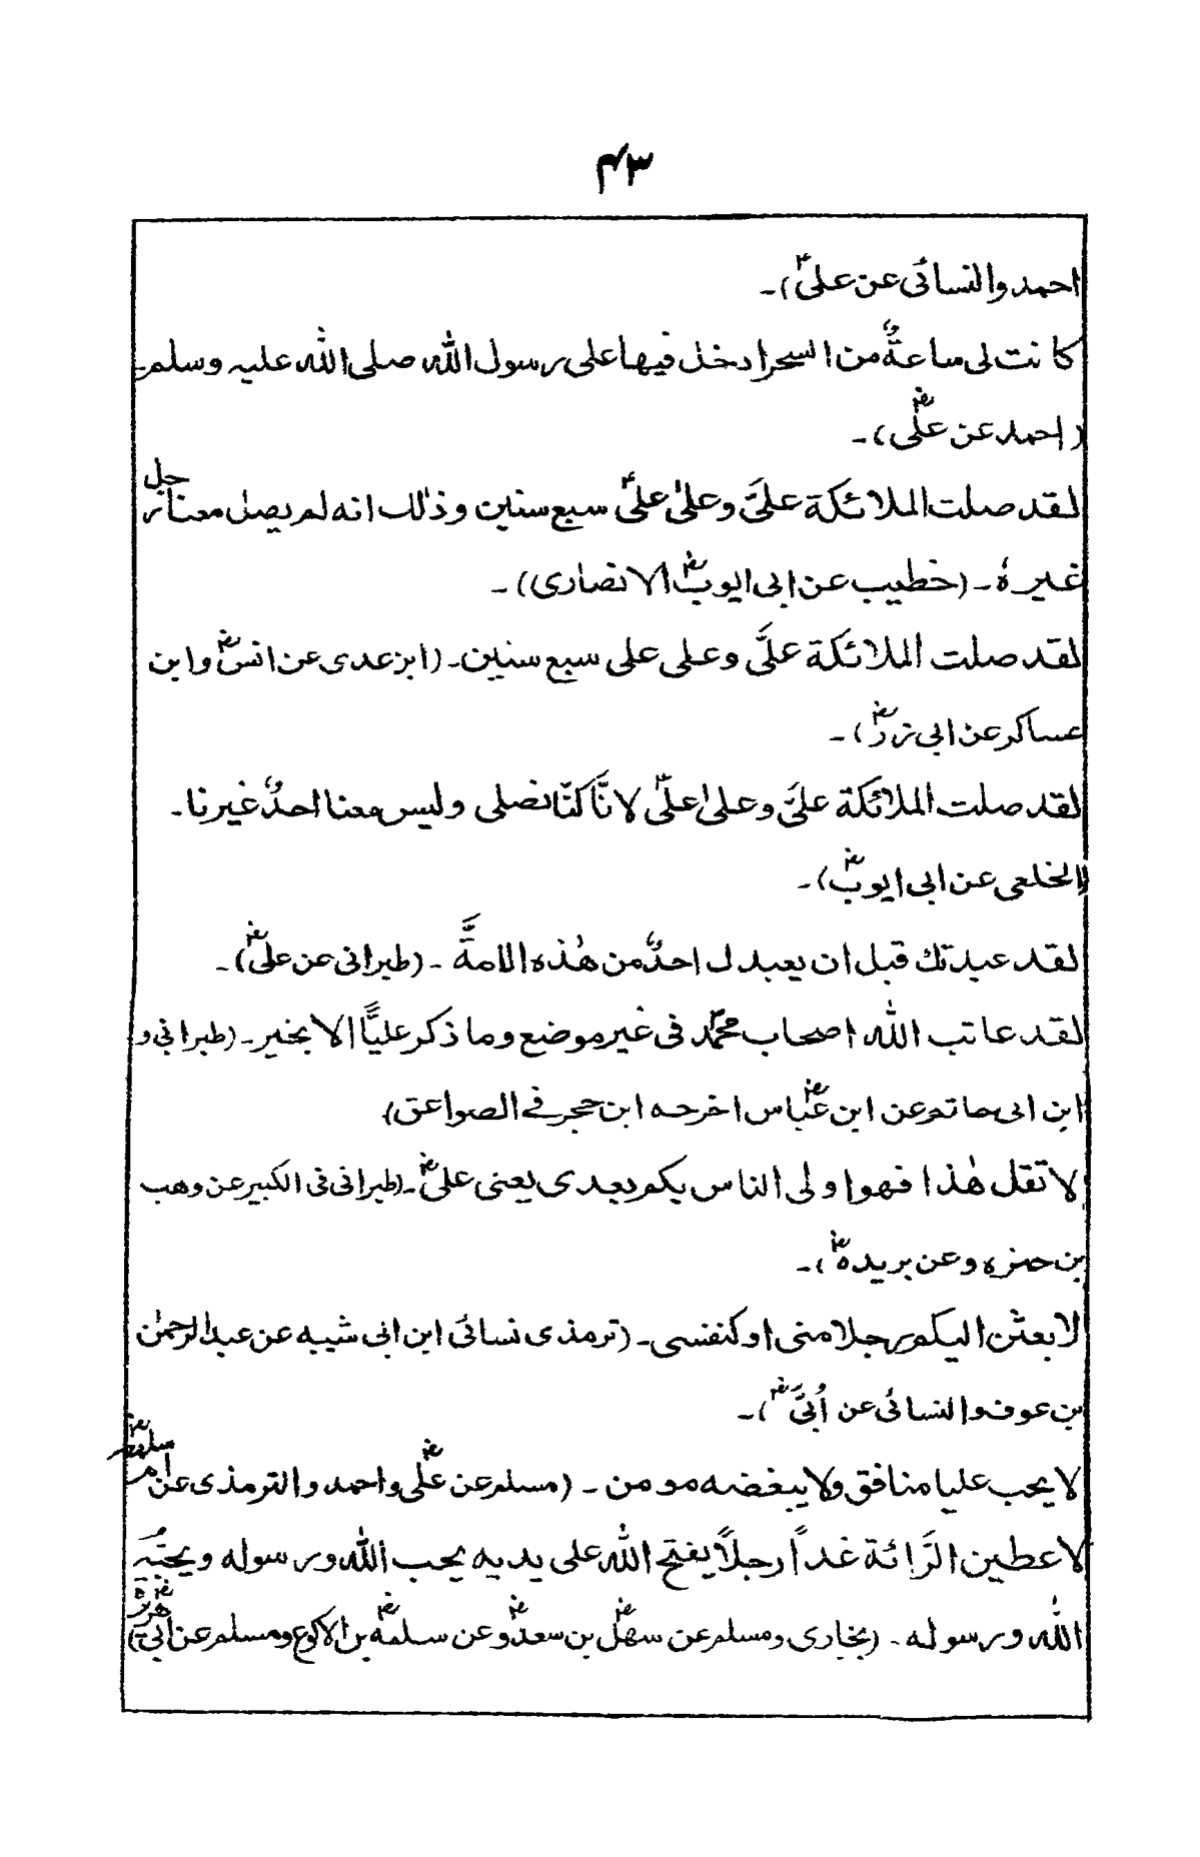 ۴۳
احمد والنسائی عن علیؓ)۔
کانت لی ساعةٌ من السحر ادخل فیها علی رسول الله صلی الله علیه وسلم۔
(احمد عن علیؓ)۔
لقد صلت الملائکة علیَّ وعلیٰ علیؓ سبع سنین وذٰلك انه لم یصل معنا رجل
غیرہٗ۔ (خطیب عن ابی ایوبؓ الانصاری)۔
لقد صلت الملائکة علیَّ وعلی علی سبع سنین۔ (ابن عدی عن انسؓ وابن
عساکر عن ابی زرؓ)۔
لقد صلت الملائکة علیَّ وعلیٰ علیؓ لانّا کنّا نصلی ولیس معنا احدٌ غیرنا۔
(الخلعی عن ابی ایوبؓ)۔
لقد عبدتك قبل ان یعبدك احدٌ من هٰذه الامةَّ۔ (طبرانی عن علیؓ)۔
لقد عاتب الله اصحاب محمدؐ فی غیر موضع وما ذکر علیًّا الا بخیر۔ (طبرانی و
ابن ابی حاتم عن ابن عباسؓ اخرجه ابن حجر فی الصواعق)
لا تقل هٰذا فهوا ولی الناس بکم بعدی یعنی علیؓ۔ (طبرانی فی الکبیر عن وهب
بن حمزه وعن بریدهؓ)۔
لابعثن الیکم رجلا منی او کنفسی۔ (ترمذی نسائی ابن ابی شیبه عن عبد الرحمٰن
بن عوف والنسائی عن اُبیَّؓ)۔
لا یحب علیا منافق ولا یبغضه مومن۔ (مسلم عن علیؓ واحمد والترمذی عن ام سلمةؓ
لاعطین الرَّائة غداً رجلاً یفتح الله علی یدیه یحب الله ورسوله ویحبُّہ
الله ورسوله۔ (بخاری ومسلم عن سهلؓ بن سعدؓ وعن سلمهؓ بن الاکوع ومسلم عن ابی هریرةؓ)